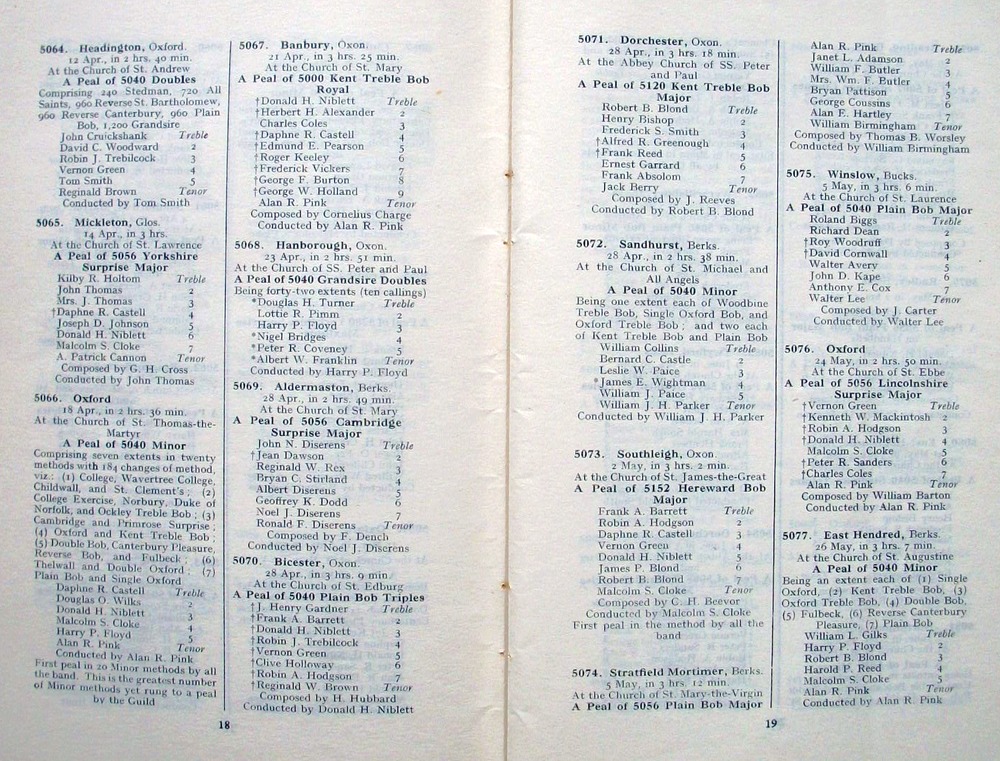 5064. Headington, Oxford.
12 Apr., in 2 hrs. 40 min.
At the Church of St. Andrew
A Peal of 5040 Doubles
Comprising 240 Stedman, 720 All
Saints, 960 Reverse St. Bartholomew,
960 Reverse Canterbury, 960 Plain
Bob, 1,200 Grandsire
John Cruickshank Treble
David C. Woodward 2
Robin J. Trebilcock 3
Vernon Green 4
Tom Smith 5
Reginald Brown Tenor
Conducted by Tom Smith
5065. Mickleton, Glos.
14 Apr., in 3 hrs.
At the Church of St. Lawrence
A Peal of 5056 Yorkshire
Surprise Major
Kilby R. Holtom Treble
John Thomas 2
Mrs. J. Thomas 3
†Daphne R. Castell 4
Joseph D. Johnson 5
Donald H. Niblett 6
Malcolm S. Cloke 7
A. Patrick Cannon Tenor
Composed by G. H. Cross
Conducted by John Thomas
5066. Oxford
18 Apr., in 2 hrs. 36 min.
At the Church of St. Thomas-the-
Martyr
A Peal of 5040 Minor
Comprising seven extents in twenty
methods with 184 changes of method,
viz.: (1) College, Wavertree College,
Childwall, and St. Clement's; (2)
College Exercise, Norbury, Duke of
Norfolk, and Ockley Treble Bob; (3)
Cambridge and Primrose Surprise;
(4) Oxford and Kent Treble Bob;
(5) Double Bob, Canterbury Pleasure,
Reverse Bob, and Fulbeck; (6)
Thelwall and Double Oxford; (7)
Plain Bob and Single Oxford
Daphne R. Castell Treble
Douglas O. Wilks 2
Donald H. Niblett 3
Malcolm S. Cloke 4
Harry P. Floyd 5
Alan R. Pink Tenor
Conducted by Alan R. Pink
First peal in 20 Minor methods by all
the band. This is the greatest number
of Minor methods yet rung to a peal
by the Guild
18
5067. Banbury, Oxon.
21 Apr., in 3 hrs. 25 min.
At the Church of St. Mary
A Peal of 5000 Kent Treble Bob
Royal
†Donald H. Niblett Treble
†Herbert H. Alexander 2
Charles Coles 3
†Daphne R. Castell 4
†Edmund E. Pearson 5
†Roger Keeley 6
†Frederick Vickers 7
†George F. Burton 8
†George W. Holland 9
Alan R. Pink Tenor
Composed by Cornelius Charge
Conducted by Alan R. Pink
5068. Hanborough, Oxon.
23 Apr., in 2 hrs. 51 min.
At the Church of SS. Peter and Paul
A Peal of 5040 Grandsire Doubles
Being forty-two extents (ten callings)
*Douglas H. Turner Treble
Lottie R. Pimm 2
Harry P. Floyd 3
*Nigel Bridges 4
*Peter R. Coveney 5
*Albert W. Franklin Tenor
Conducted by Harry P. Floyd
5069. Aldermaston, Berks.
28 Apr., in 2 hrs. 49 min.
At the Church of St. Mary
A Peal of 5056 Cambridge
Surprise Major
John N. Diserens Treble
†Jean Dawson 2
Reginald W. Rex 3
Bryan C. Stirland 4
Albert Diserens 5
Geoffrey K. Dodd 6
Noel J. Diserens 7
Ronald F. Diserens Tenor
Composed by F. Dench
Conducted by Noel J. Diserens
5070. Bicester, Oxon.
28 Apr., in 3 hrs. 9 min.
At the Church of St. Edburg
A Peal of 5040 Plain Bob Triples
†J. Henry Gardner Treble
†Frank A. Barrett 2
†Donald H. Niblett 3
†Robin J. Trebilcock 4
†Vernon Green 5
†Clive Holloway 6
†Robin A. Hodgson 7
†Reginald W. Brown Tenor
Composed by H. Hubbard
Conducted by Donald H. Niblett
5071. Dorchester, Oxon.
28 Apr., in 3 hrs. 18 min.
At the Abbey Church of SS. Peter
and Paul
A Peal of 5120 Kent Treble Bob
Major
Robert B. Blond Treble
Henry Bishop 2
Frederick S. Smith 3
†Alfred R. Greenough 4
†Frank Reed 5
Ernest Garrard 6
Frank Absolom 7
Jack Berry Tenor
Composed by J. Reeves
Conducted by Robert B. Blond
5072. Sandhurst, Berks.
28 Apr., in 2 hrs. 38 min.
At the Church of St. Michael and
All Angels
A Peal of 5040 Minor
Being one extent each of Woodbine
Treble Bob, Single Oxford Bob, and
Oxford Treble Bob; and two each
of Kent Treble Bob and Plain Bob
William Collins Treble
Bernard C. Castle 2
Leslie W. Paice 3
*James E. Wightman 4
William J. Paice 5
William J. H. Parker Tenor
Conducted by William J. H. Parker
5073. Southleigh, Oxon.
2 May, in 3 hrs. 2 min.
At the Church of St. James-the-Great
A Peal of 5152 Hereward Bob
Major
Frank A. Barrett Treble
Robin A. Hodgson 2
Daphne R. Castell 3
Vernon Green 4
Donald H. Niblett 5
James P. Blond 6
Robert B. Blond 7
Malcolm S. Cloke Tenor
Composed by C. H. Beevor
Conducted by Malcolm S. Cloke
First peal in the method by all the
band
5074. Stratfield Mortimer, Berks.
5 May, in 3 hrs. 12 min.
At the Church of St. Mary-the-Virgin
A Peal of 5056 Plain Bob Major
Alan R. Pink Treble
Janet L. Adamson 2
William F. Butler 3
Mrs. Wm. F. Butler 4
Bryan Pattison 5
George Coussins 6
Alan E. Hartley 7
William Birmingham Tenor
Composed by Thomas B. Worsley
Conducted by William Birmingham
5075. Winslow, Bucks.
5 May, in 3 hrs. 6 min.
At the Church of St. Laurence
A Peal of 5040 Plain Bob Major
Roland Biggs Treble
Richard Dean 2
†Roy Woodruff 3
†David Cornwall 4
Walter Avery 5
John D. Kape 6
Anthony E. Cox 7
Walter Lee Tenor
Composed by J. Carter
Conducted by Walter Lee
5076. Oxford
24 May, in 2 hrs. 50 min.
At the Church of St. Ebbe
A Peal of 5056 Lincolnshire
Surprise Major
†Vernon Green Treble
†Kenneth W. Mackintosh 2
†Robin A. Hodgson 3
†Donald H. Niblett 4
Malcolm S. Cloke 5
†Peter R. Sanders 6
†Charles Coles 7
Alan R. Pink Tenor
Composed by William Barton
Conducted by Alan R. Pink
5077. East Hendred, Berks.
26 May, in 3 hrs. 7 min.
At the Church of St. Augustine
A Peal of 5040 Minor
Being an extent each of (1) Single
Oxford, (2) Kent Treble Bob, (3)
Oxford Treble Bob, (4) Double Bob,
(5) Fulbeck, (6) Reverse Canterbury
Pleasure, (7) Plain Bob
William L. Gilks Treble
Harry P. Floyd 2
Robert B. Blond 3
Harold P. Reed 4
Malcolm S. Cloke 5
Alan R. Pink Tenor
Conducted by Alan R. Pink
19